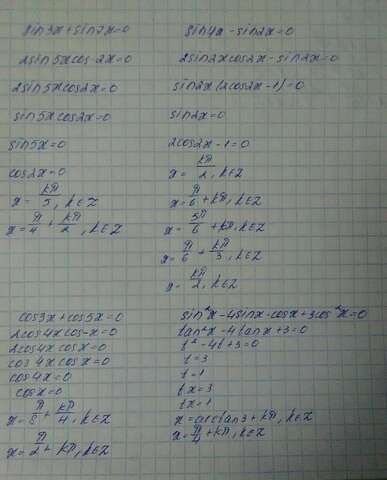 sin3x + sin7x = 0
2sin5xcos-2x = 0
2sin5xcos2x = 0
sin5xcos2x = 0
sin5x = 0
cos2x = 0
x = kπ/5, k∈Z
x = π/4 + kπ/2, k∈Z
sin4x - sin2x = 0
2sin2xcos2x - sin2x = 0
sin2x(2cos2x-1) = 0
sin2x = 0
2cos2x - 1 = 0
x = kπ/2, k∈Z
x = π/6 + kπ, k∈Z
x = 5π/6 + kπ, k∈Z
x = π/6 + kπ/3, k∈Z
x = kπ/2, k∈Z
cos3x + cos5x = 0
2cos4xcos-x = 0
2cos4xcosx = 0
cos4xcosx = 0
cos4x = 0
cosx = 0
x = π/8 + kπ/4, k∈Z
x = π/2 + kπ, k∈Z
sin²x - 4sinx·cosx + 3cos²x = 0
tan²x - 4tanx + 3 = 0
t² - 4t + 3 = 0
t = 3
t = 1
tx = 3
tx = 1
x = arctan3 + kπ, k∈Z
x = π/4 + kπ, k∈Z